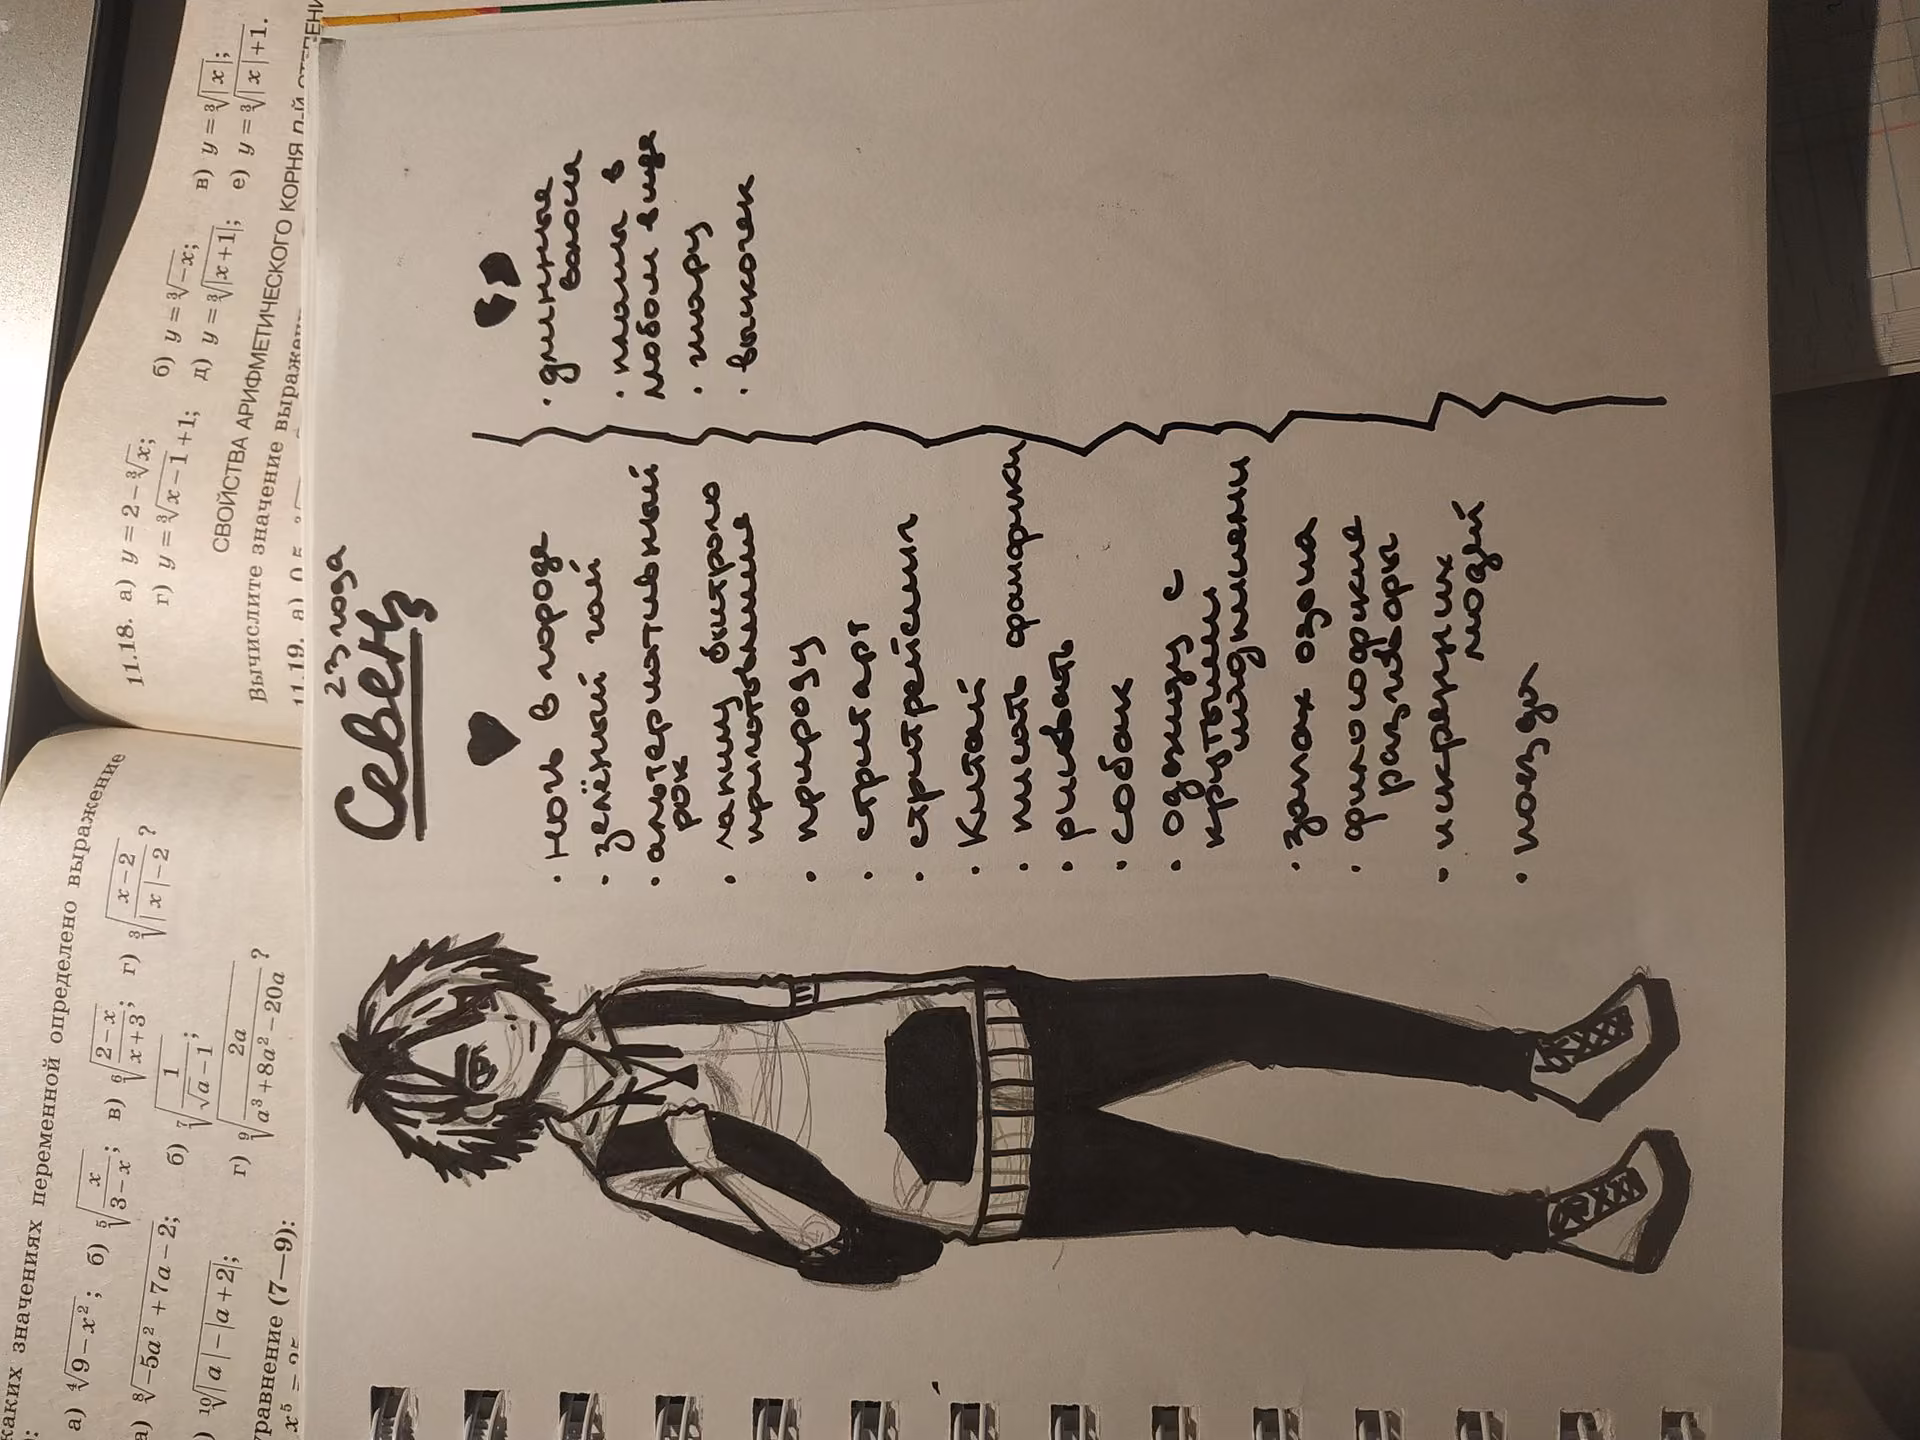 каких значениях переменной определено выражение
а) ∜(9−x²); б) ⁵√(x/(3−x)); в) ⁶√((2−x)/(x+3)); г) ³√((x−2)/(|x|−2))?
а) ⁸√(−5a²+7a−2); б) ⁷√(1/(√a−1));
) ¹⁰√(|a|−|a+2|); г) ⁹√(2a/(a³+8a²−20a))?
уравнение (7—9):
11.18. а) y = 2−³√x; б) y = ³√−x; в) y = ³√|x|;
г) y = ³√(x−1)+1; д) y = ³√|x+1|; е) y = ³√|x|+1.
СВОЙСТВА АРИФМЕТИЧЕСКОГО КОРНЯ n-Й СТЕПЕНИ
Вычислите значение выражения
11.19. а)
23 года
Севен
• ночь в городе
• зелёный чай
• альтернативный
рок
• лапшу быстрого
приготовления
• природу
• стритарт
• стритстайл
• Китай
• писать фанфики
• рисовать
• собак
• одежду с
крутыми
надписями
• запах озона
• философские
разговоры
• искренних
людей
• поезда
• длинные
волосы
• в
любом виде
• жару
• выскочек